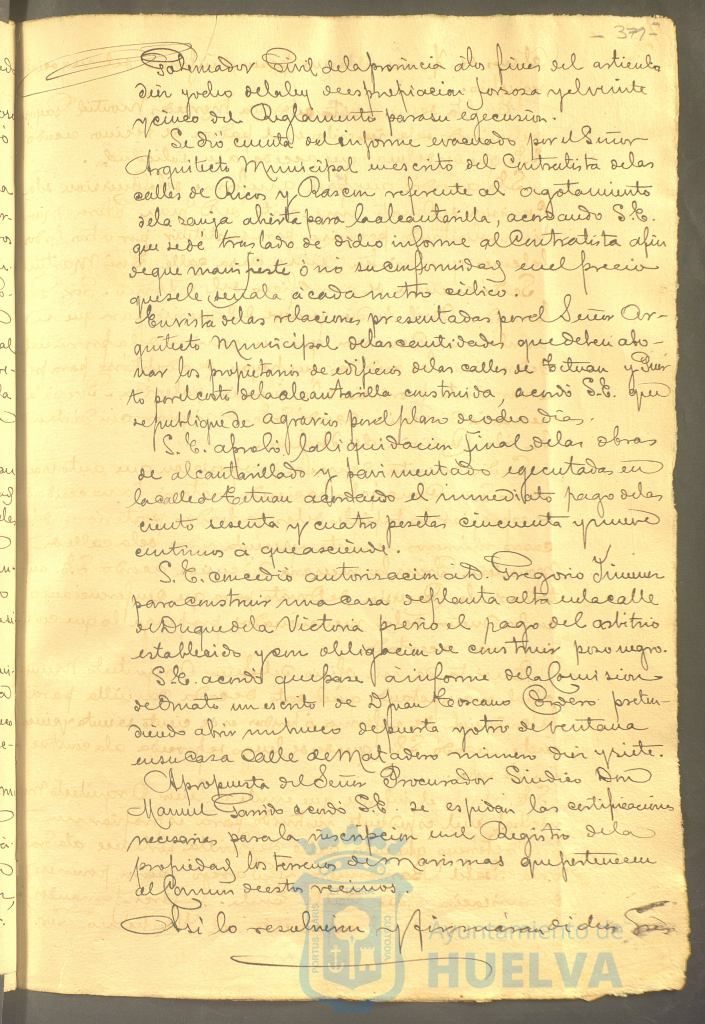 - 371 -
Gobernador Civil de la provincia á los fines del articulo
diez y ocho de la ley de espropiacion forzosa y el veinte
y cinco del Reglamento para su egecusion.
Se dió cuenta del informe evacuado por el Señor
Arquitecto Municipal en escrito del Contratista de las
calles de Ricos y Rascon referente al agotamiento
de la zanja abierta para la alcantarilla, acordando S. E.
que se dé traslado de dicho informe al Contratista a fin
de que manifieste ó nó su conformidad en el precio
que se le señala á cada metro cúbico.
En vista de las relaciones presentadas por el Señor Ar-
quitecto Municipal de las cantidades que deben abo-
nar los propietarios de edificios de las calles de Tetuan y Puer
to por el costo de la alcantarilla construida, acordó S. E. que
se publique de agravios por el plazo de ocho dias.
S. E. aprobó la liquidacion final de las obras
de alcantarillado y pavimentado egecutadas en
la calle de Tetuan acordando el inmediato pago de las
ciento sesenta y cuatro pesetas cincuenta y nueve
centimos á que asciende.
S. E. concedió autorizacion á D. Gregorio Jimenez
para construir una casa de planta alta en la calle
de Duque de la Victoria previo el pago del arbitrio
establecido y con obligacion de construir pozo negro.
S. E. acordó que pase á informe de la Comision
de Ornato un escrito de D. Juan Toscano Cordero preten-
diendo abrir un hueco de puerta y otro de ventana
en su casa calle de Matadero número diez y siete.
A propuesta del Señor Procurador Sindico Don
Manuel Garrido acordó S. E. se espidan las certificaciones
necesarias para la inscripcion en el Registro de la
propiedad los terrenos de marismas que pertenecen
al Comun de estos vecinos.
Asi lo resolvieron y firmarán dichos Sres
PORTUS MARIS
CUSTODIA
Ayuntamiento de
HUELVA